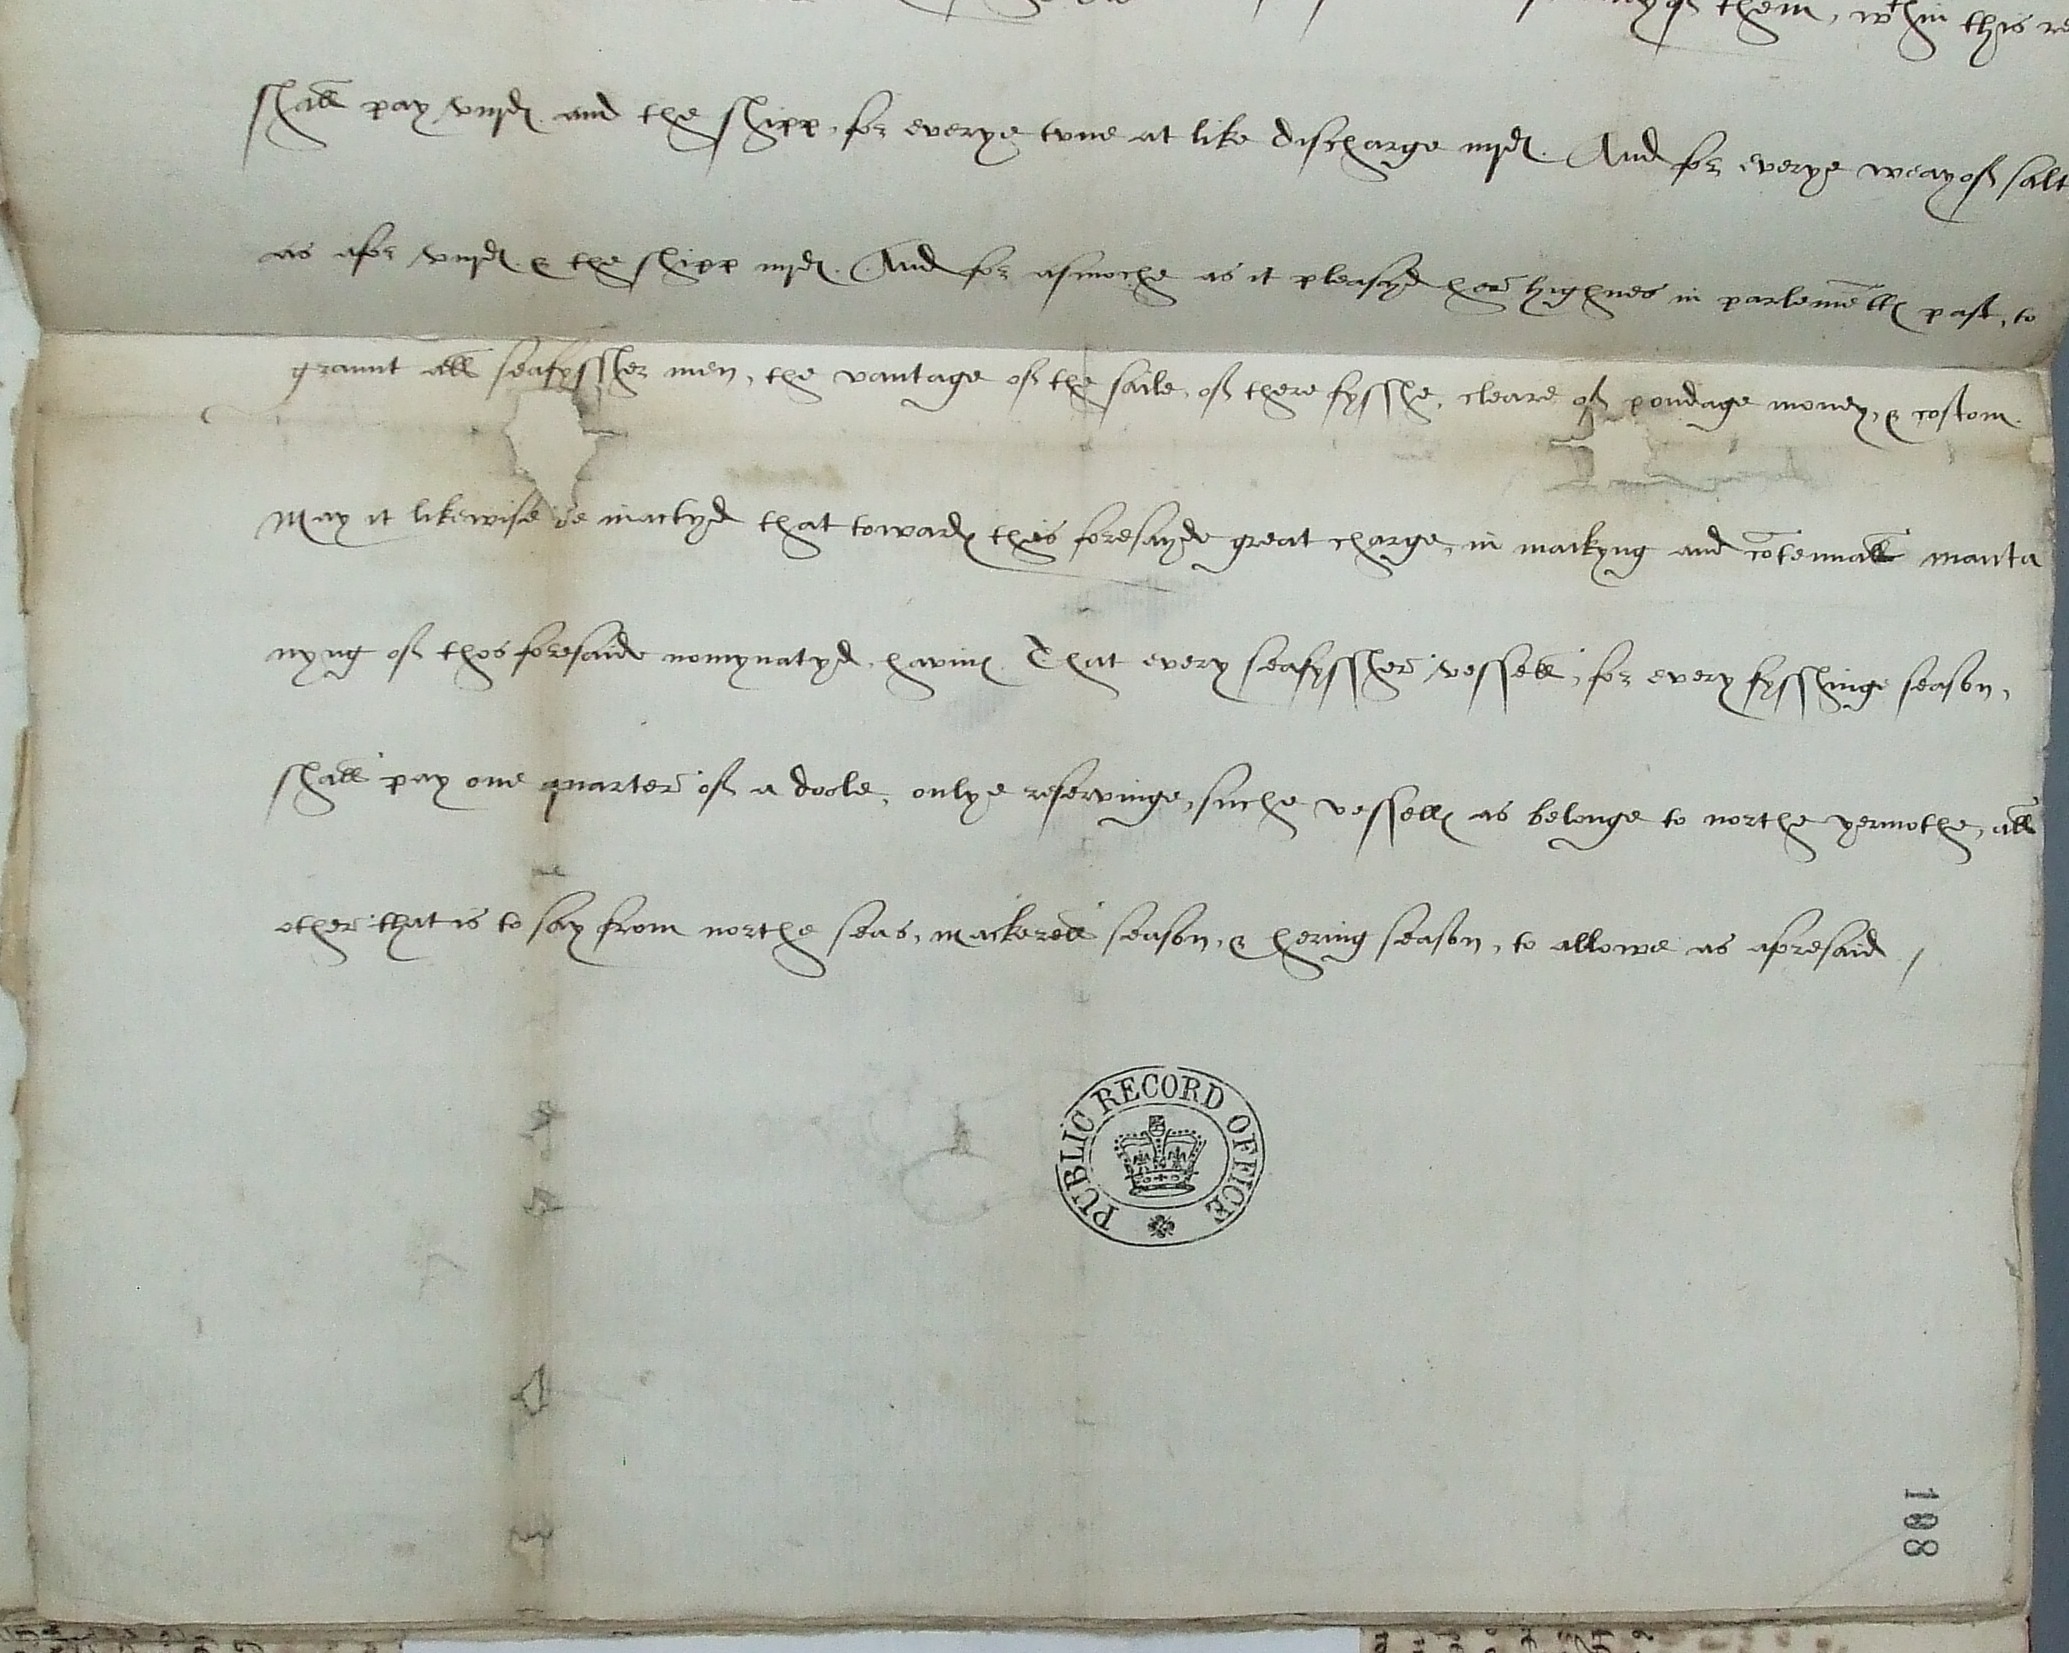 them, wthin this re
shall pay viijd. and the shipp, for everye tvne at like discharge iiijd. And for everye weay of salt
as afor viijd. & the shipp iiijd. And for asmoche as it pleasyd her highnes in parlement past, to
graunt all seafyssher men, the vantage of the saile, of there fysshe, cleare of pondage money, & costom.
May it likewise be inactyd that towards this foresayde great charge, in mackyng and cotenuall manta
nyng of thos foresaide nomynatyd havins. That every seafyssher vessell, for every fysshinge season,
shall pay one quarter of a doole, onlye reservinge, suche vessells as belonge to northe yermothe, all
other that is to say from northe seas, mackerell season, & hering season, to allowe as aforesaid /
PUBLIC RECORD OFFICE
108